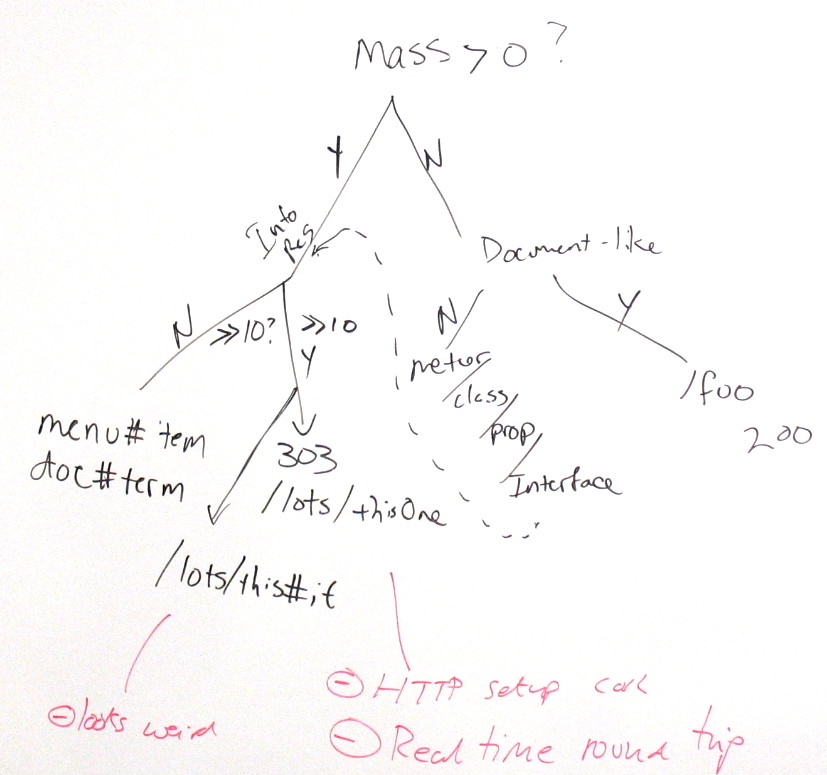 Mass > 0 ?
Y
N
Info
Res
Document-like
N
≫10?
≫10
Y
N
Y
class/
prop/
Interface
/foo
200
menu# tem
doc#term
303
/lots/thisOne
/lots/this#it
⊖ looks weird
⊖ HTTP setup
⊖ Real time round trip